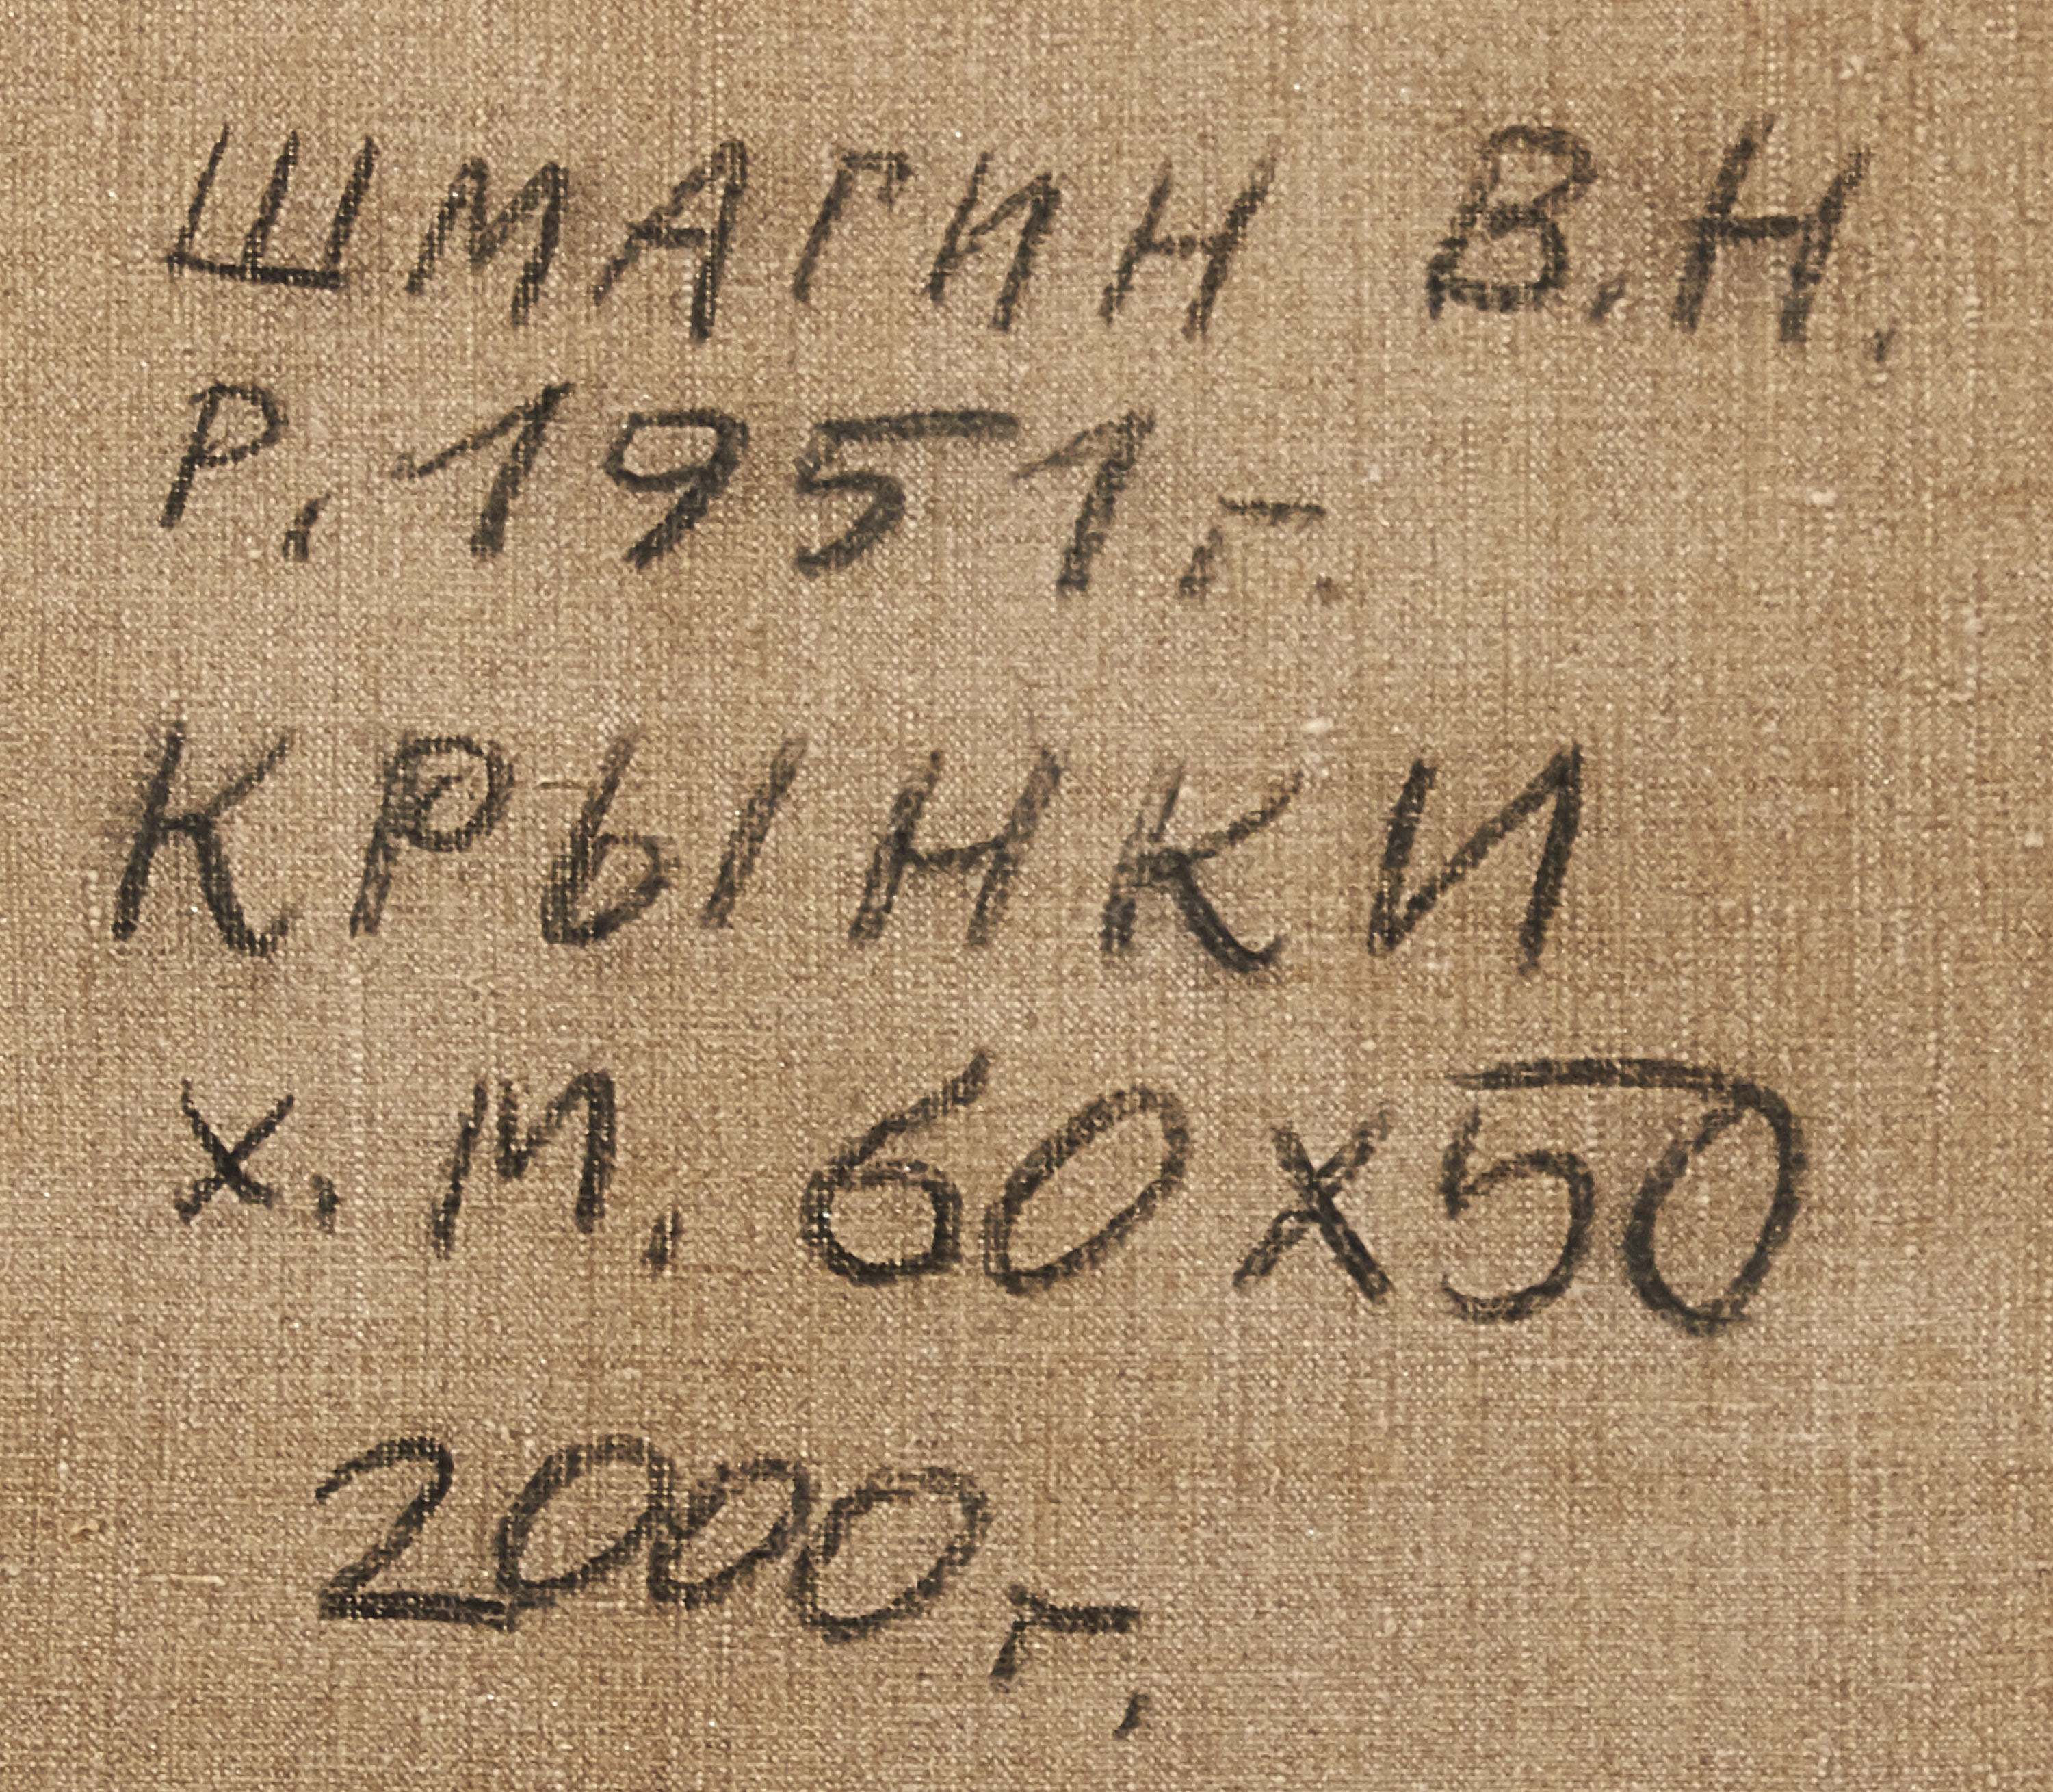 ШМАГИН В.Н.
Р. 1951 г.
КРЫНКИ
х. М. 60х50
2000 г.